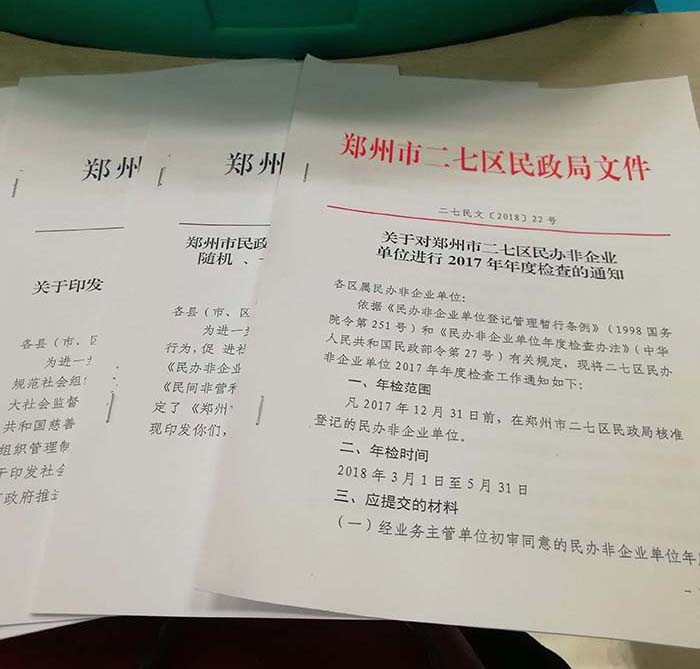 郑州
关于印发
各县（市、区
为进一步
规范社会组
大社会监督
共和国慈善
组织管理制
于印发社会
政府推进
郑州
郑州市民政
随机、
各县（市、区
为进一
行为，促进社
《民办非企业
《民间非营利
定了《郑州
现印发你们，
郑州市二七区民政局文件
二七民文〔2018〕22号
关于对郑州市二七区民办非企业
单位进行2017年年度检查的通知
各区属民办非企业单位：
依据《民办非企业单位登记管理暂行条例》（1998国务
院令第251号）和《民办非企业单位年度检查办法》（中华
人民共和国民政部令第27号）有关规定，现将二七区民办
非企业单位2017年年度检查工作通知如下：
一、年检范围
凡2017年12月31日前，在郑州市二七区民政局核准
登记的民办非企业单位。
二、年检时间
2018年3月1日至5月31日
三、应提交的材料
（一）经业务主管单位初审同意的民办非企业单位年